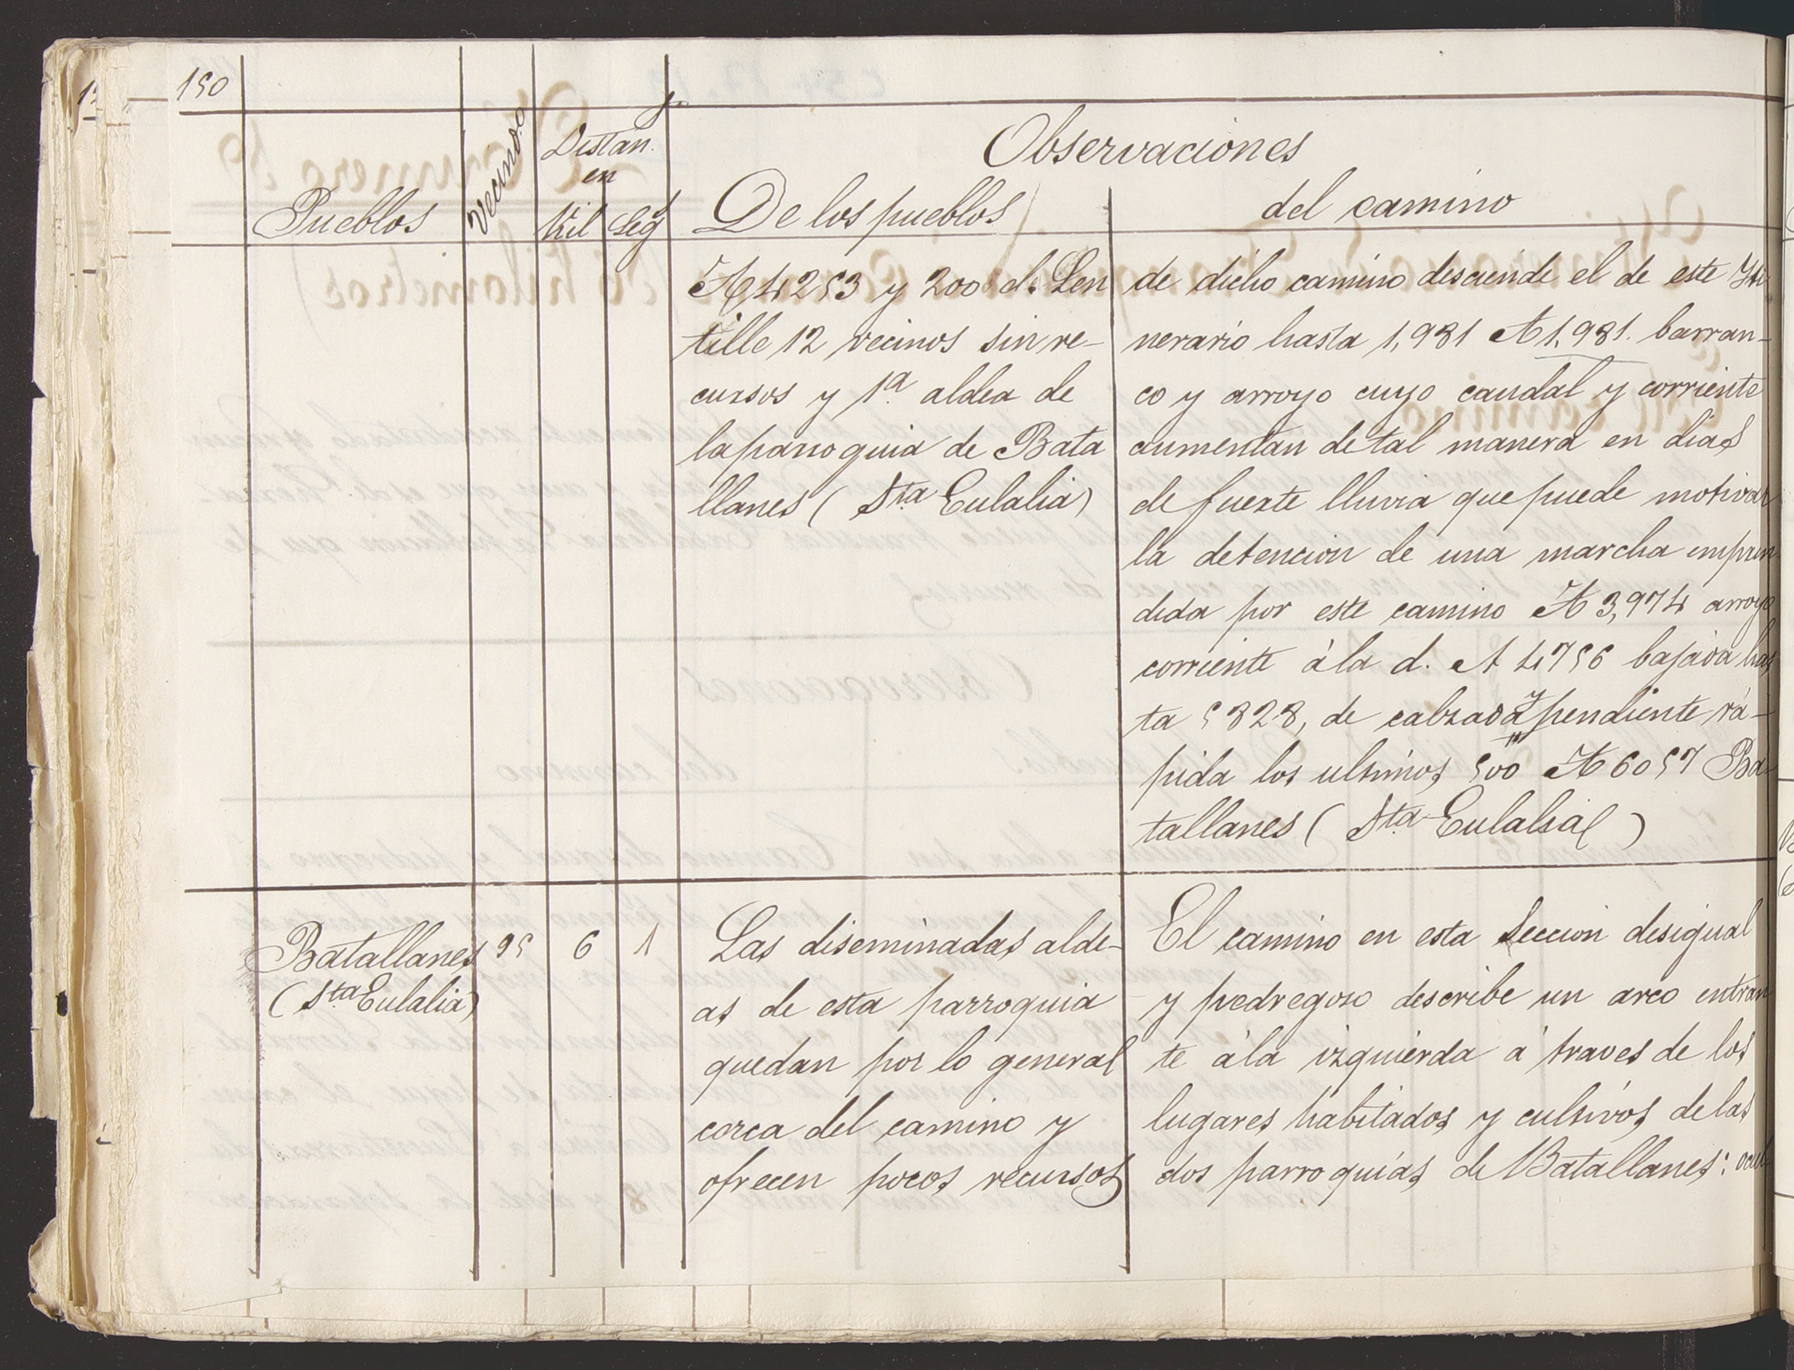 150
Observaciones
Pueblos
Vecindo
Distan.
en
Kil
Leg
De los pueblos
del camino
A 4253 y 200 d. Len
tille 12 vecinos sin re-
cursos y 1ª aldea de
la parroquia de Bata
llanes (Sta Eulalia)
de dicho camino desciende el de este Yti
nerario hasta 1,981 A 1,981. barran-
co y arroyo cuyo caudal y corriente
aumentan de tal manera en dias
de fuerte lluvia que puede motivar
la detencion de una marcha empren
dida por este camino A 3,974 arroyo
corriente á la d. A 4756 bajada has
ta 5828, de calzada y pendiente rá-
pida los ultimos 500 m A 6057 Ba
tallanes (Sta Eulalia)
Batallanes
(Sta Eulalia)
95
6
1
Las diseminadas alde-
as de esta parroquia
quedan por lo general
cerca del camino y
ofrecen pocos recursos
El camino en esta Seccion desigual
y pedregoso describe un arco entran
te á la izquierda á traves de los
lugares habitados y cultivos de las
dos parroquias de Batallanes: